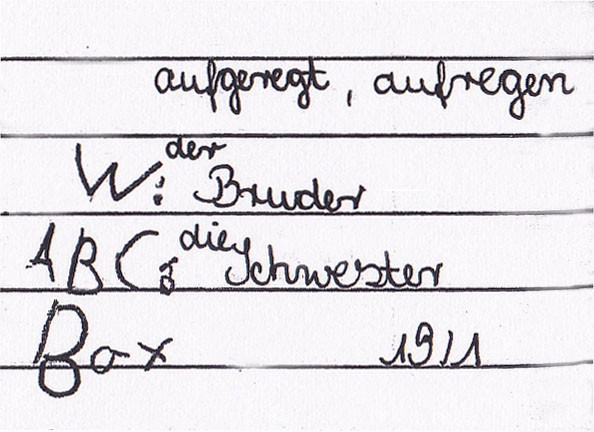 aufgeregt, aufregen
W: der Bruder
ABC: die Schwester
Box 19/1